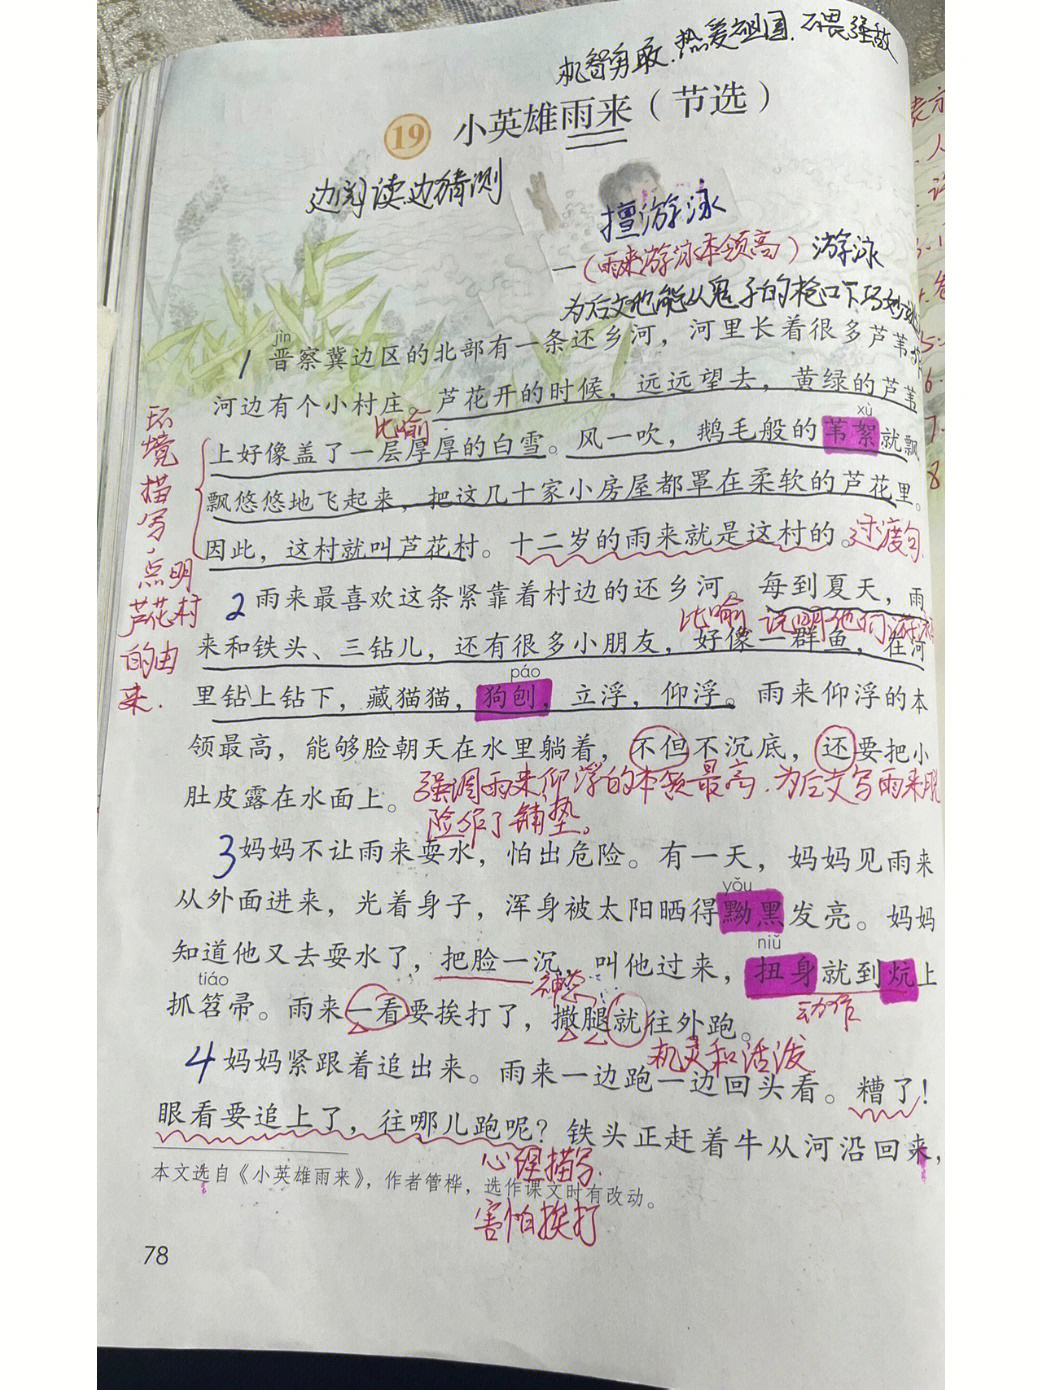 机智勇敢.热爱祖国.不畏强敌
19 小英雄雨来(节选)
边阅读边猜测
擅游泳
—(雨来游泳本领高)游泳
为后文他能从鬼子的枪口下巧妙
jìn
1 晋察冀边区的北部有一条还乡河，河里长着很多芦苇。
河边有个小村庄。芦花开的时候，远远望去，黄绿的芦苇
比喻
xù
上好像盖了一层厚厚的白雪。风一吹，鹅毛般的苇絮就飘
飘悠悠地飞起来，把这几十家小房屋都罩在柔软的芦花里。
因此，这村就叫芦花村。十二岁的雨来就是这村的。过渡句.
环
境
描
写.
点明
芦花村
的由
来.
2 雨来最喜欢这条紧靠着村边的还乡河。每到夏天，雨
比喻 说明他们游泳
来和铁头、三钻儿，还有很多小朋友，好像一群鱼，在河
páo
里钻上钻下，藏猫猫，狗刨，立浮，仰浮。雨来仰浮的本
领最高，能够脸朝天在水里躺着，不但不沉底，还要把小
肚皮露在水面上。
强调雨来仰浮的本领最高.为后文写雨来脱
险作了铺垫。
3 妈妈不让雨来耍水，怕出危险。有一天，妈妈见雨来
yǒu
从外面进来，光着身子，浑身被太阳晒得黝黑发亮。妈妈
niǔ
知道他又去耍水了，把脸一沉，叫他过来，扭身就到炕上
tiáo
神态
动作
抓笤帚。雨来一看要挨打了，撒腿就往外跑。
机灵和活泼
4 妈妈紧跟着追出来。雨来一边跑一边回头看。糟了！
眼看要追上了，往哪儿跑呢？铁头正赶着牛从河沿回来，
心理描写.
害怕挨打
本文选自《小英雄雨来》，作者管桦，选作课文时有改动。
78
表示
人
5
6.
7.
8